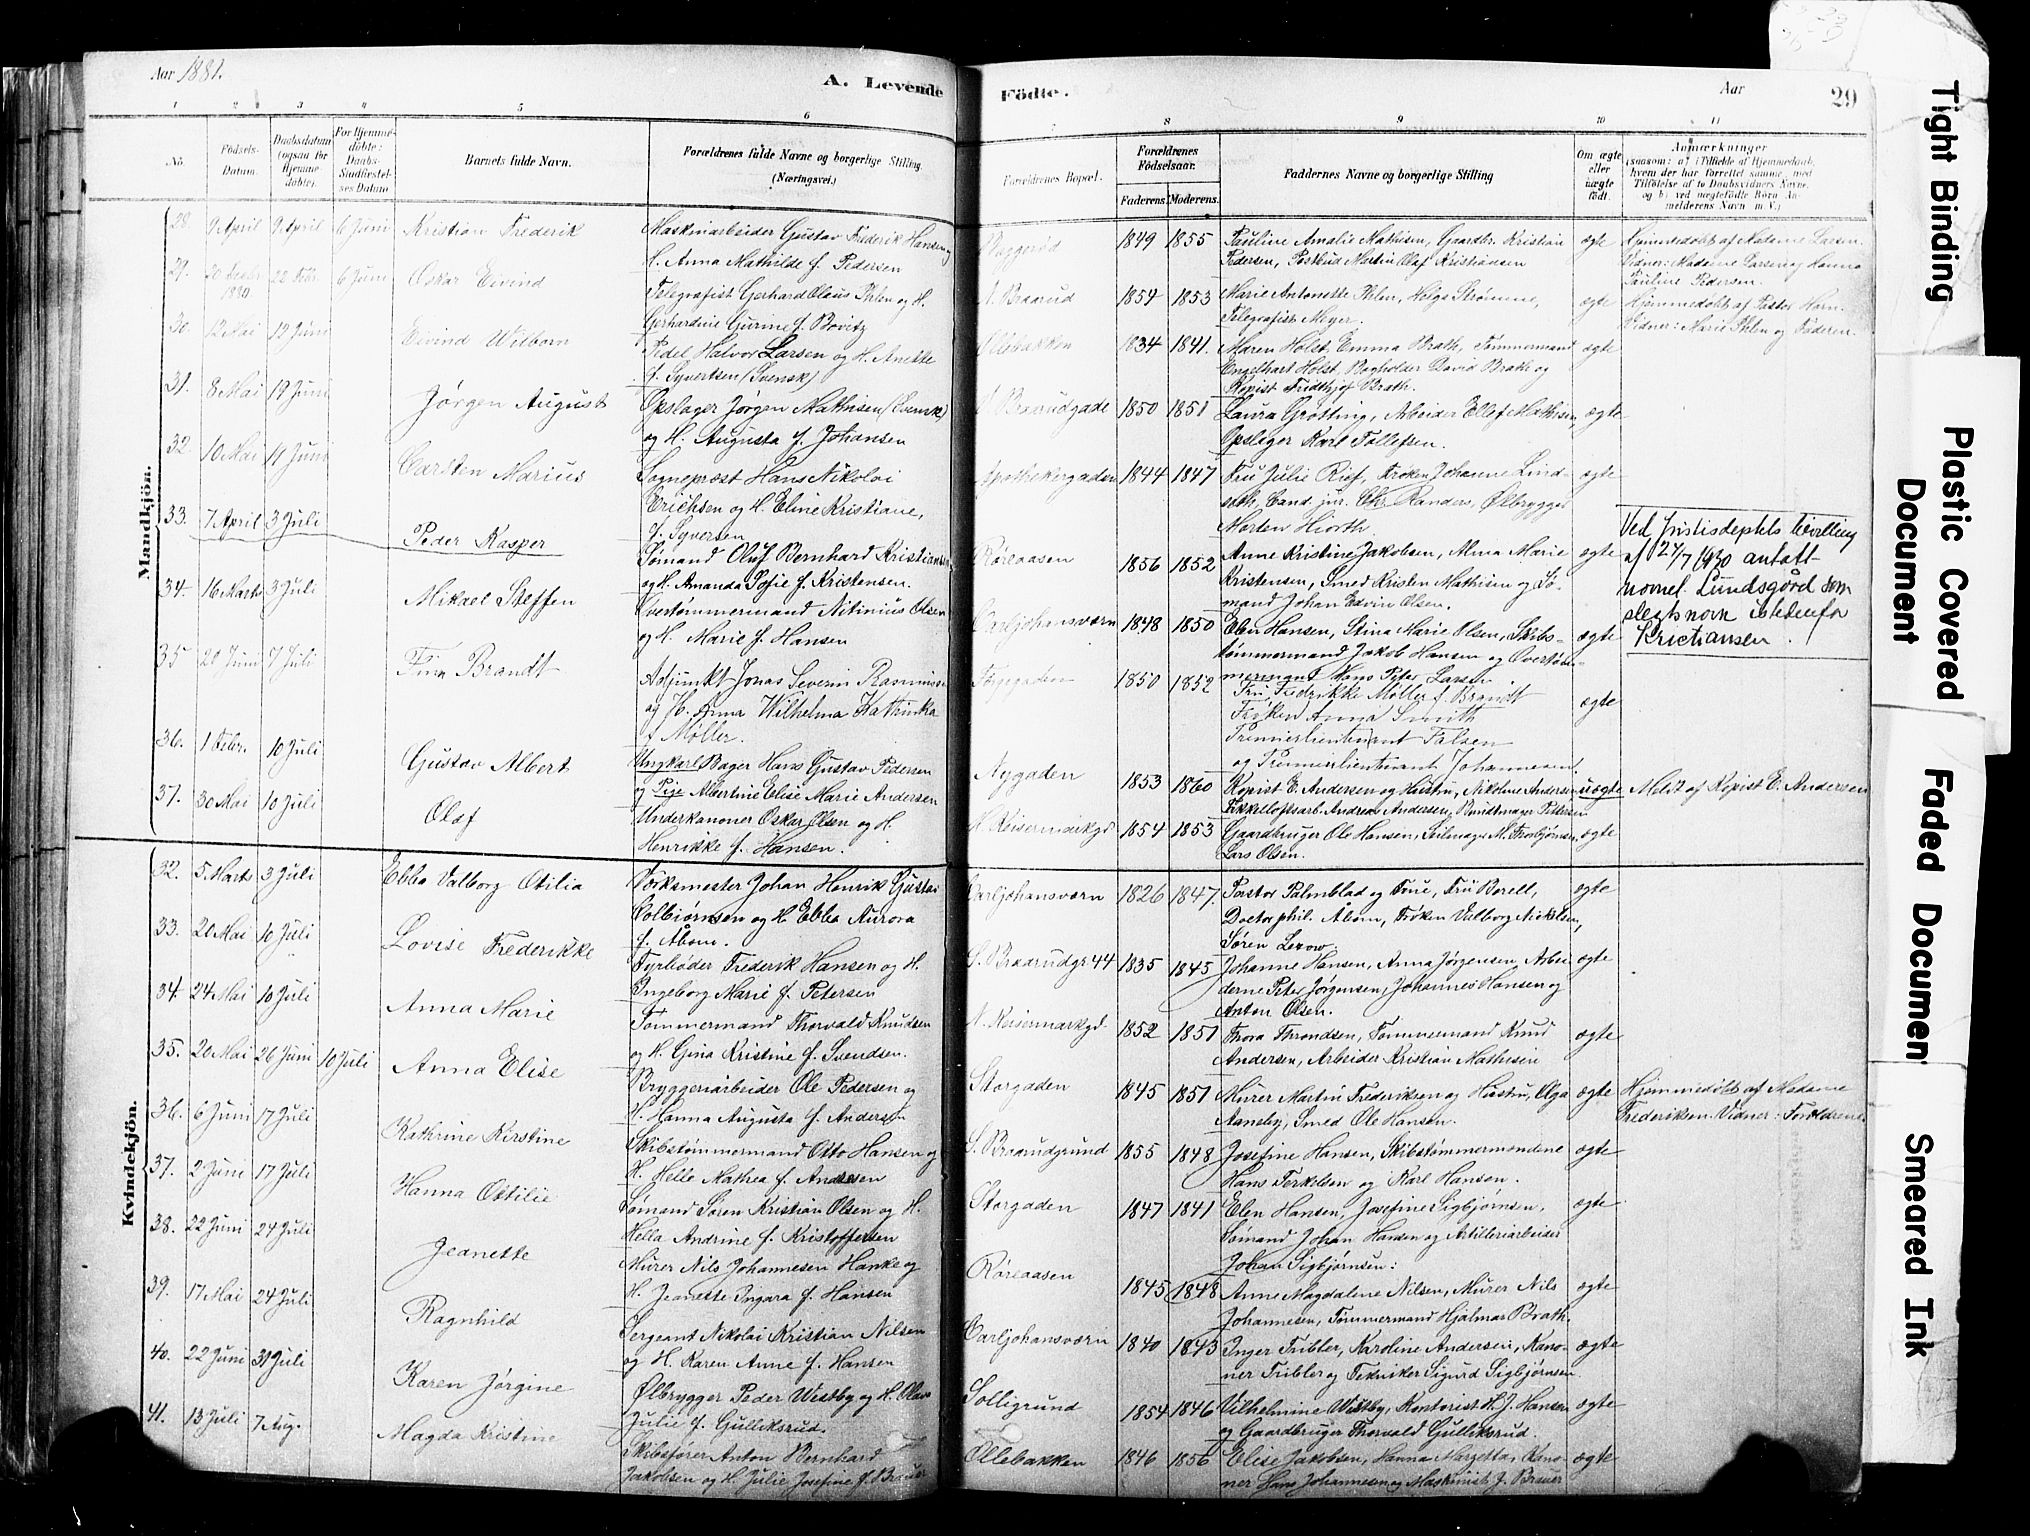 Aar 1881.
A. Levende
1 2 3 4 5 6
No.
Födsels-Datum.
Daabsdatum (ogsaa for Hjemmedöbte).
For Hjemmedöbte: Daabs-Stadfæstelses Datum
Barnets fulde Navn.
Forældrenes fulde Navne og borgerlige Stilling.
(Næringsvei.)
Mandkjön.
28. 9 April 9 April 6 Juni Kristian Frederik Maskinarbeider Gustav Frederik Hansen og
H. Anna Mathilde f. Pedersen
29. 20 1880 6 Juni Oskar Eivind Telegrafist Gerhard Olaus Ihlen og H.
Gerhardine Gurine f. Bovitz
30. 12 Mai 19 Juni Eivind Wilborn Pedel Halvor Larsen og H. Anette
f. Syvertsen (Svensk)
31. 8 Mai 19 Juni Jørgen August Opslager Jørgen Mathisen (Svensk)
og H. Augusta f. Johansen
32. 10 Mai 11 Juni Carsten Marius Sogneprest Hans Nikolai
Erichsen og H. Eline Kristiane,
f. Syversen
33. 7 April 3 Juli Peder Kasper Sømand Oluf Bernhard Kristiansen
og H. Amanda Sofie f. Kristensen.
34. 16 Marts 3 Juli Mikael Steffen Overtømmermand Nitinius Olsen
og H. Marie f. Hansen
35 20 Juni 7 Juli Finn Brandt Adjunkt Jonas Severin Rasmussen
og H. Anna Wilhelma Kathinka
f Møller.
36. 1 Febr. 10 Juli Gustav Albert Ungkarl Bager Hans Gustav Pedersen
og Pige Albertine Elise Marie Andersen
37. 30 Mai 10 Juli Olaf Underkanoner Oskar Olsen og H.
Henrikke f. Hansen.
Kvindekjön.
32. 5 Marts 3 Juli Ebba Valborg Otilia Værksmester Johan Henrik Gustav
Colbiørnsen og H. Ebba Aurora
f. Åbom.
33. 20 Mai 10 Juli Lovise Frederikke Fyrbøder Frederik Hansen og H.
Ingeborg Marie f. Petersen
34. 24 Mai 10 Juli Anna Marie Tømmermand Thorvald Knudsen
og H. Gina Kristine f. Svendsen.
35. 20 Mai 26 Juni 10 Juli Anna Elise Bryggeriarbeider Ole Pedersen og
H. Hanna Augusta f. Andersen
36. 6 Juni 17 Juli Kathrine Kirstine Skibstømmermand Otto Hansen og
H. Helle Mathea f. Andersen
37. 2 Juni 17 Juli Hanna Ottilie Sømand Søren Kristian Olsen og H.
Hella Andrine f. Kristoffersen
38. 22 Juni 24 Juli Jeanette Murer Nils Johannesen Hanke og
H. Jeanette Ingara f. Hansen
39. 17 Mai 24 Juli Ragnhild Sergeant Nikolai Kristian Nilsen
og H. Karen Anne f. Hansen
40. 22 Juni 31 Juli Karen Jørgine Ølbrygger Peder Westby og H. Olava
Julie f. Gulliksrud.
41. 13 Juli 7 Aug. Magda Kristine Skibsfører Anton Bernhard
Jakobsen og H. Julie Josefine f. Brauer
Födte.
Aar
29
7 8 9 10 11
Forældrenes Bopæl.
Forældrenes Födselsaar.
Faderens. Moderens.
Faddernes Navne og borgerlige Stilling
Om ægte eller uægte født.
Anmærkninger
(saasom: a) i Tilfælde af Hjemmedaab, hvem der har forrettet samme, med Tilföielse af to Daabsvidners Navne, og b) ved uægtefödte Börn Anmelderens Navn m. V.)
1849 1855 Pauline Amalie Mathisen, Gaardbr. Kristian ægte Hjemmedøbt af Madame Larsen.
Pedersen, Postbud Martin Olaf Kristiansen Vidner: Madame Larsen og Hanna
Pauline Pedersen.
N. Braarud 1854 1853 Marie Antonette Ihlen, Helga Strømme, ægte Hjemmedøbt af Pastor Horn.
Telegrafist Meyer. Vidner: Marie Ihlen og Faderen.
Ollebakken 1834 1841. Maren Holst, Emma Brath, Tømmermand ægte
Engelhart Holst, Bogholder David Brath og
Kopist Fridthjof Brath.
N. Braarudgade 1850 1851 Laura Grøtting, Arbeider Ellef Mathisen, ægte
Opslager Karl Tollefsen.
Apothekergaden 1844 1847 Fru Julie Rief, Frøken Johanne Lind-
seth, Cand. jur. Chr. Randers, Ølbrygger ægte
Morten Hiorth
Røreaasen 1856 1852 Anne Kristine Jakobsen, Alma Marie ægte
Kristensen, Smed Kristen Mathisen og Sø-
mand Johan Edvin Olsen.
Ved Justisdeptets bevilling
af 24/7 1930 antatt
navnet Lundsgård som
slegtsnavn istedenfor
Kristiansen.
Carljohansværn 1848 1850 Elen Hansen, Stina Marie Olsen, Skibs- ægte
tømmermand Jakob Hansen og Overtøm-
mermand Hans Peter Larsen
1850 1852 Fru Fredrikke Møller f. Brandt ægte
Frøken Anna Smith
Premierlieutenant Falsen
og Premierlieutenant Johannesen.
Nygaden 1853 1860 Kopist E. Andersen og Hustru, Nikoline Andersen uægte Meldt af Kopist E. Andersen
Fikkelloftsarb. Andreas Andersen, Bundtmager Petersen
N. Keisermarkgd 1854 1853 Gaardbruger Ole Hansen, Seilmager M. Thorbjørnsen, ægte
Lars Olsen.
Carljohansværn 1826 1847. Pastor Palmblad og Frue, Fru Borell, ægte
Doctor phil. Åbom, Frøken Valborg Nickelsen,
Søren Lexow.
S. Braarudgr 44 1835 1845 Johanne Hansen, Anna Jørgensen Arbei- ægte
derne Peter Jørgensen, Johannes Hansen og
Anton Olsen.
N. Keisermarkgd. 1852 1851 Thora Throndsen, Tømmermand Knud ægte
Andersen, Arbeider Kristian Mathisen
Storgaden 1845 1851 Murer Martin Frederiksen og Hustru, Olga ægte Hjemmedøbt af Madame
Aansby, Smed Ole Hansen. Frederiksen. Vidner: Forældrene.
S. Braarudgrund 1855 1848 Josefine Hansen, Skibstømmermændene ægte
Hans Terkelsen og Karl Hanson.
Storgaden 1847 1841 Elen Hansen, Josefine Sigbjørnsen, ægte
Sømand Johan Hansen og Artilleriarbeider
Johan Sigbjørnsen:
Røreaasen 1845 1848 Anne Magdalene Nilsen, Murer Nils ægte
Johannesen, Tømmermand Hjalmar Brath.
Carljohansværn 1840 1843 Inger Tribler, Karoline Andersen, Kano- ægte
ner Tribler og Tekniker Sigurd Sigbjørnsen.
Solligrund 1854 1846 Vilhelmine Westby, Kontorist H. J. Hansen ægte
og Gaardbruger Thorvald Gulliksrud.
Ollebakken 1846 1856 Elise Jakobsen, Hanna Margetta, Kano- ægte
ner Hans Johannesen og Maskinist J. Brauer
Tight Binding
Plastic Covered Document
Faded Documen
Smeared Ink